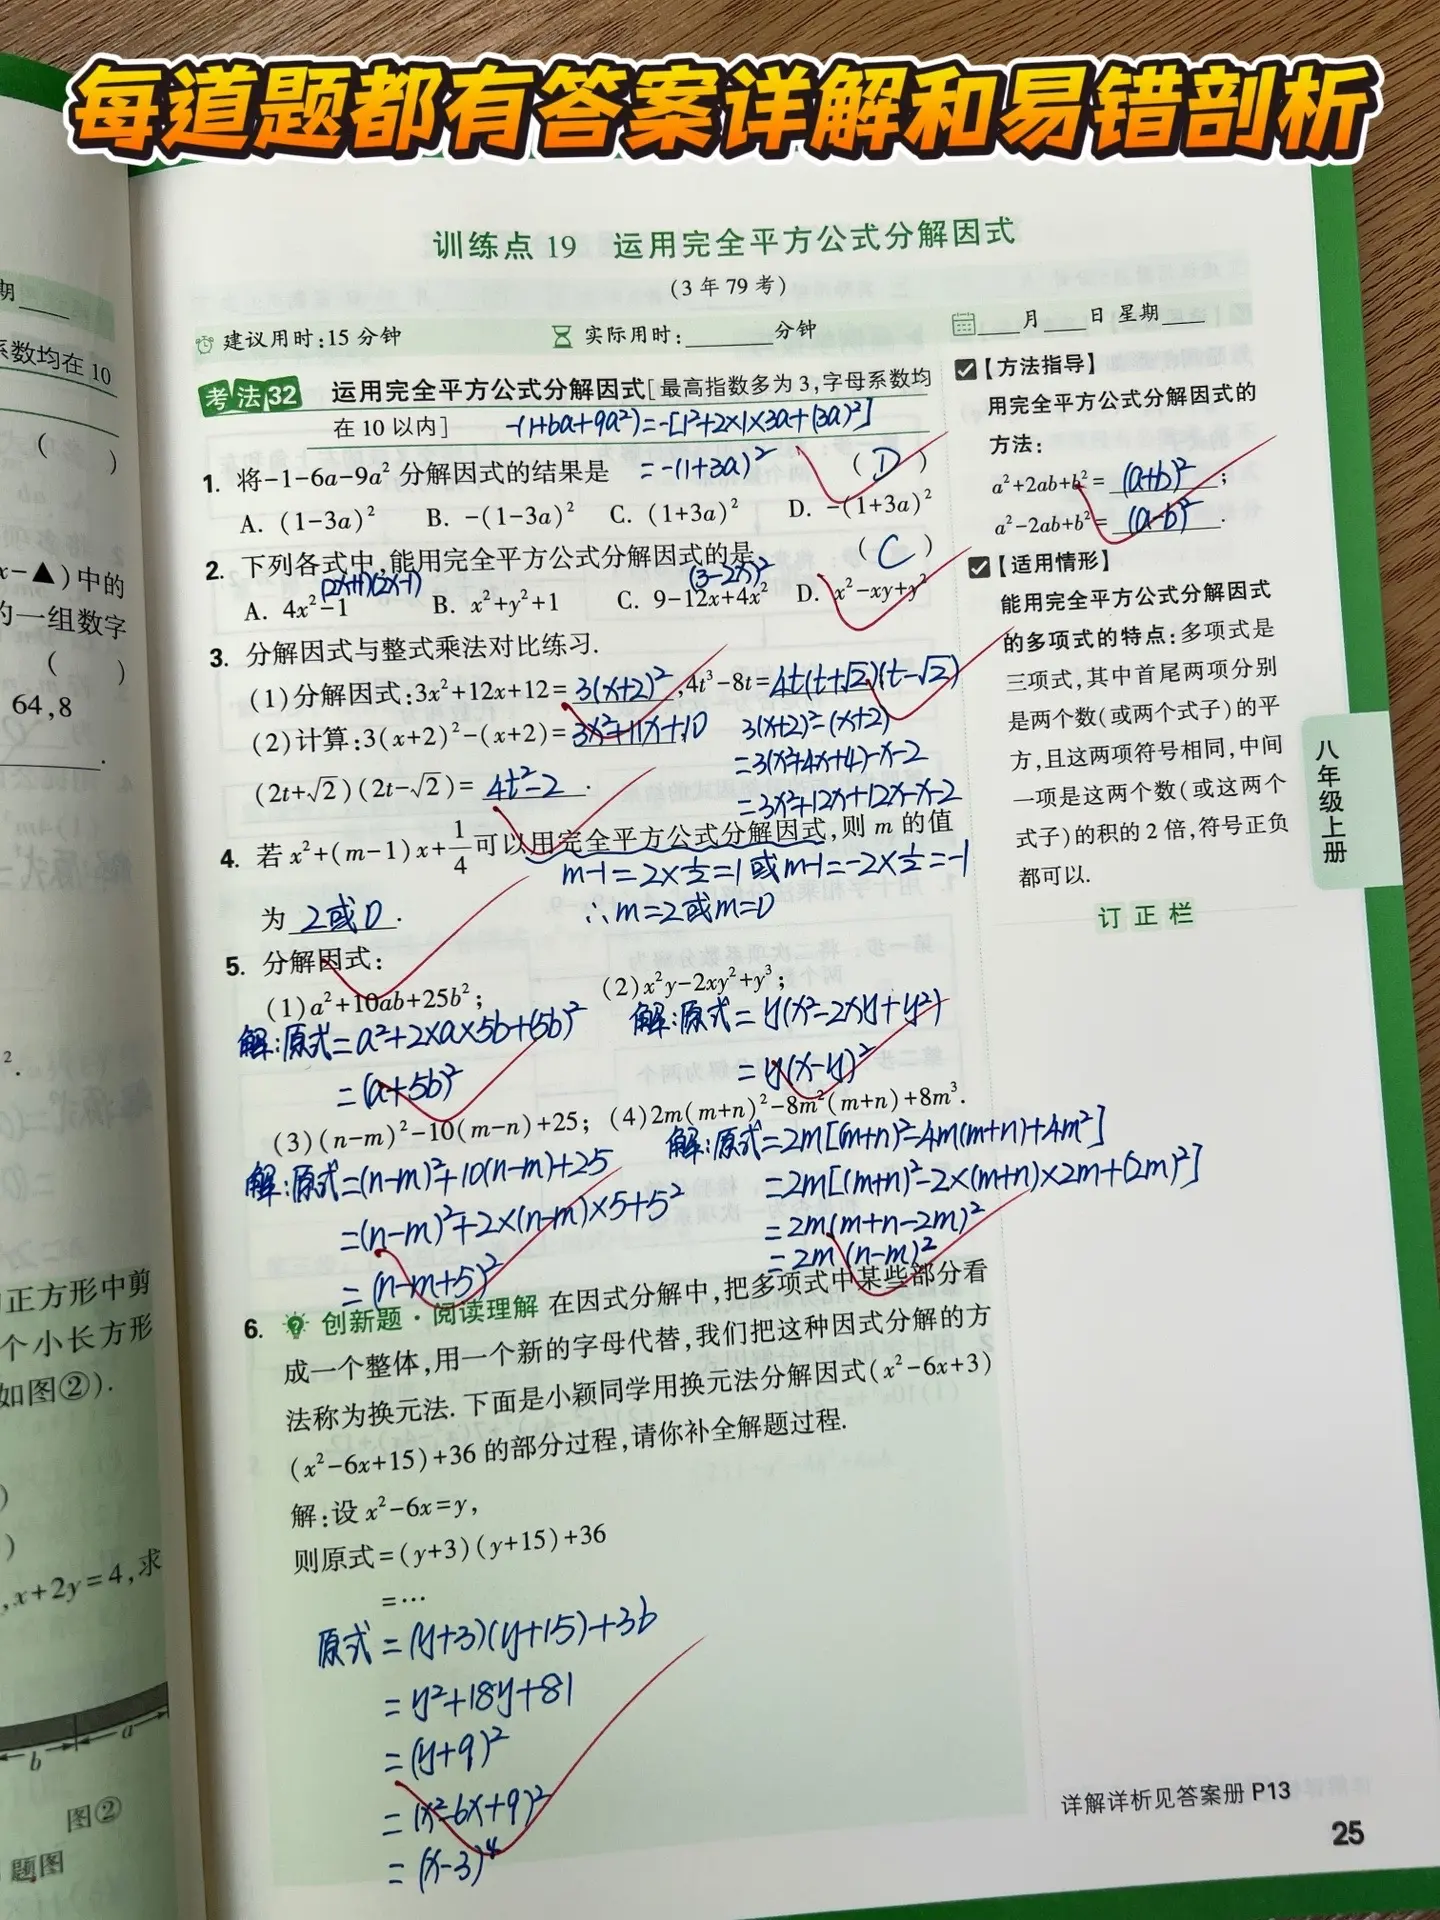 每道题都有答案详解和易错剖析
训练点 19 运用完全平方公式分解因式
(3 年 79 考)
建议用时:15 分钟 实际用时:______分钟 月___日 星期___
考法32 运用完全平方公式分解因式[最高指数多为 3,字母系数均
在 10 以内]
-(1+6a+9a²)=-[1²+2×1×3a+(3a)²]
1. 将-1-6a-9a² 分解因式的结果是 =-(1+3a)² ( D )
A. (1-3a)² B. -(1-3a)² C. (1+3a)² D. -(1+3a)²
2. 下列各式中,能用完全平方公式分解因式的是 ( C )
(2x+1)(2x-1) (3-2x)²
A. 4x²-1 B. x²+y²+1 C. 9-12x+4x² D. x²-xy+y²
3. 分解因式与整式乘法对比练习.
(1)分解因式:3x²+12x+12=3(x+2)²,4t³-8t=4t(t+√2)(t-√2)
(2)计算:3(x+2)²-(x+2)=3x²+11x+10
3(x+2)²-(x+2)
=3(x²+4x+4)-x-2
=3x²+12x+12-x-2
(2t+√2)(2t-√2)=4t²-2.
4. 若 x²+(m-1)x+1/4可以用完全平方公式分解因式,则 m 的值
m-1=2×½=1 或 m-1=-2×½=-1
∴m=2或m=0
为 2或0.
5. 分解因式:
(1)a²+10ab+25b²; (2)x²y-2xy²+y³;
解:原式=a²+2×a×5b+(5b)²
=(a+5b)²
解:原式=y(x²-2xy+y²)
=y(x-y)²
(3)(n-m)²-10(m-n)+25; (4)2m(m+n)²-8m²(m+n)+8m³.
解:原式=(n-m)²+10(n-m)+25
=(n-m)²+2×(n-m)×5+5²
=(n-m+5)²
解:原式=2m[(m+n)²-4m(m+n)+4m²]
=2m[(m+n)²-2×(m+n)×2m+(2m)²]
=2m(m+n-2m)²
=2m(n-m)²
6. 创新题·阅读理解 在因式分解中,把多项式中某些部分看
成一个整体,用一个新的字母代替,我们把这种因式分解的方
法称为换元法. 下面是小颖同学用换元法分解因式(x²-6x+3)
(x²-6x+15)+36 的部分过程,请你补全解题过程.
解:设 x²-6x=y,
则原式=(y+3)(y+15)+36
=…
原式=(y+3)(y+15)+36
=y²+18y+81
=(y+9)²
=(x²-6x+9)²
=(x-3)⁴
【方法指导】
用完全平方公式分解因式的
方法:
a²+2ab+b²=(a+b)²;
a²-2ab+b²=(a-b)².
【适用情形】
能用完全平方公式分解因式
的多项式的特点:多项式是
三项式,其中首尾两项分别
是两个数(或两个式子)的平
方,且这两项符号相同,中间
一项是这两个数(或这两个
式子)的积的 2 倍,符号正负
都可以.
订正栏
八年级上册
详解详析见答案册 P13
25
期___
系数均在 10
( )
x-▲)中的
的一组数字
( )
64,8
正方形中剪
个小长方形
如图②).
,x+2y=4,求
b a
图②
题图